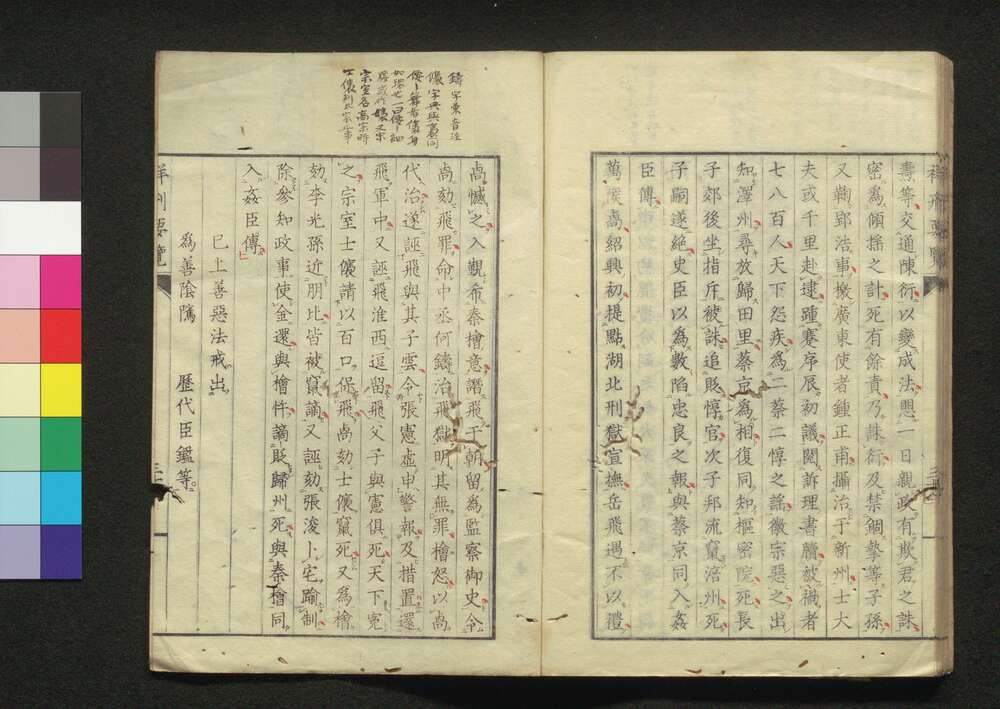 壽等交通陳衍以變成法愳一日親政有欺君之誅
密為傾搖之計死有餘責乃誅衍及禁錮摯等子孫
又鞫鄒浩事檄廣東使者鍾正甫攝治于新州士大
夫或千里赴逮踵蹇序辰初議閱訴理書牘被禍者
七八百人天下怨疾為二蔡二惇之謠徽宗惡之出
知潭州尋放歸田里蔡京為相復同知樞密院死長
子郊後坐指斥被誅追貶惇官次子邦流竄涪州死
子嗣遂絶史臣以為數陷忠良之報與蔡京同入姦
臣傳
萬俟卨紹興初提點湖北刑獄宣撫岳飛遇不以禮
祥刑要覽
三十
鑄字東音注
儴字典與襄同
卨憾之入覲希秦檜意譖飛于朝留為監察御史令
卨劾飛罪命中丞何鑄治飛獄明其無罪檜怒以卨
代治遂誣飛與其子雲令張憲虛申警報及措置還
飛軍中又誣飛淮西逗留飛父子與憲俱死天下寃
之宗室士㒟請以百口保飛卨劾士㒟竄死又為檜
劾李光孫近朋比皆被竄謫又誣劾張浚卜宅踰制
除參知政事使金還與檜忤謫貶歸州死與秦檜同
入姦臣傳
已上善惡法戒出
為善陰隲 歷代臣鑑等
祥刑要覽